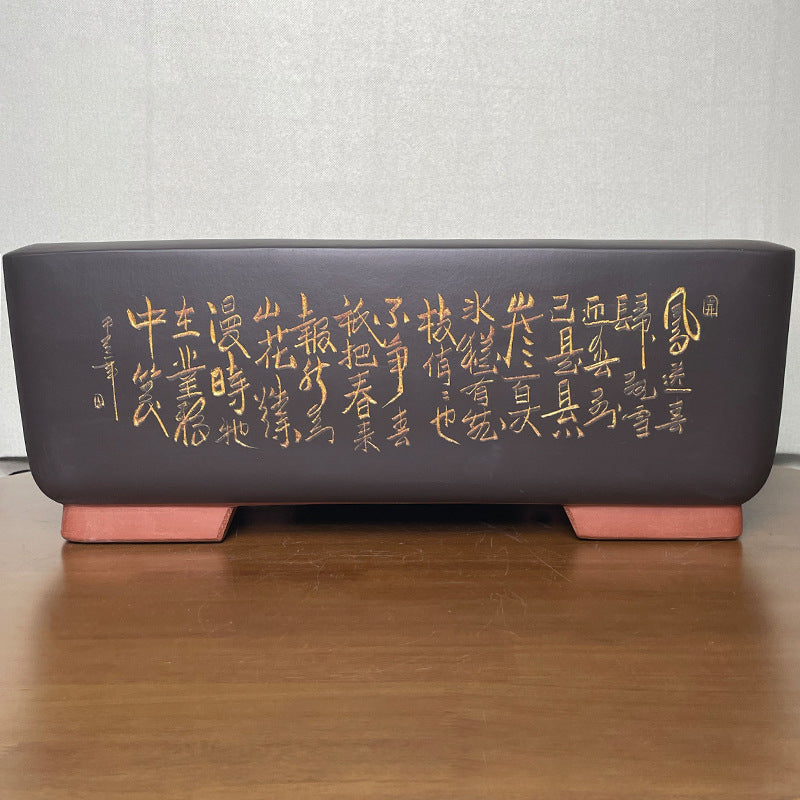 風送春
歸飛雪
迎春到
已是懸
崖百丈
冰猶有花
枝俏〻也
不争春
祇把春来
報待到
山花爛
漫時她
在叢
中笑